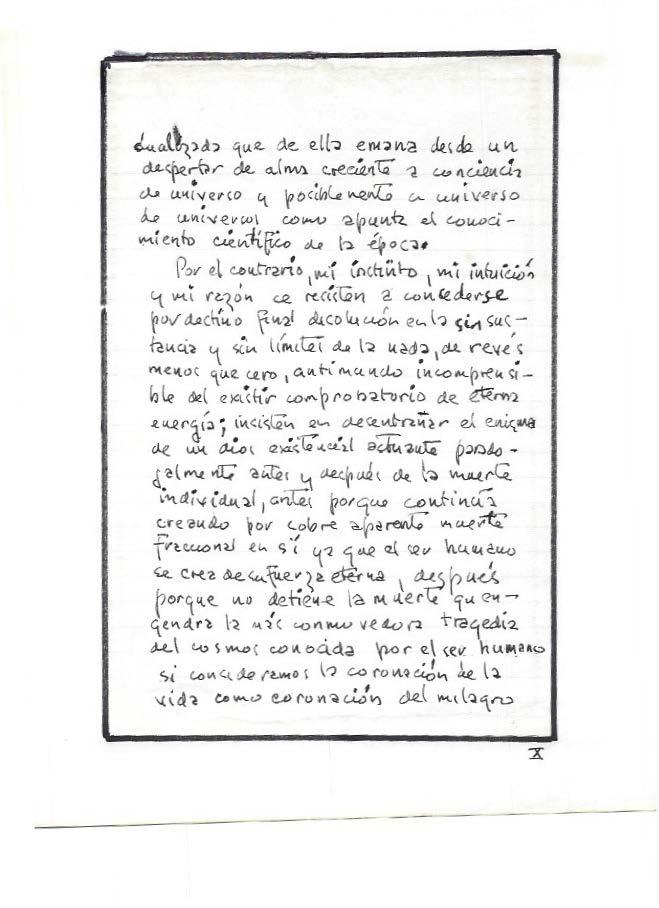 dualizada que de ella emana desde un
despertar de alma creciente a conciencia
de universo y posiblemente a universo
de universos como apunta el conoci-
miento científico de la época.
Por el contrario, mi instinto, mi intuición
y mi razón se resisten a concederse
por destino final disolución en la sin sus-
tancia y sin límites de la nada, de revés
menos que cero, antimundo incomprensi-
ble del existir comprobatorio de eterna
energía; insisten en desentrañar el enigma
de un dios existencial actuante parado-
jalmente antes y después de la muerte
individual, antes porque continúa
creando por sobre aparente muerte
fraccional en sí ya que el ser humano
se crea de su fuerza eterna, después
porque no detiene la muerte que en-
gendra la más conmovedora tragedia
del cosmos conocida por el ser humano
si consideramos la coronación de la
vida como coronación del milagro
X